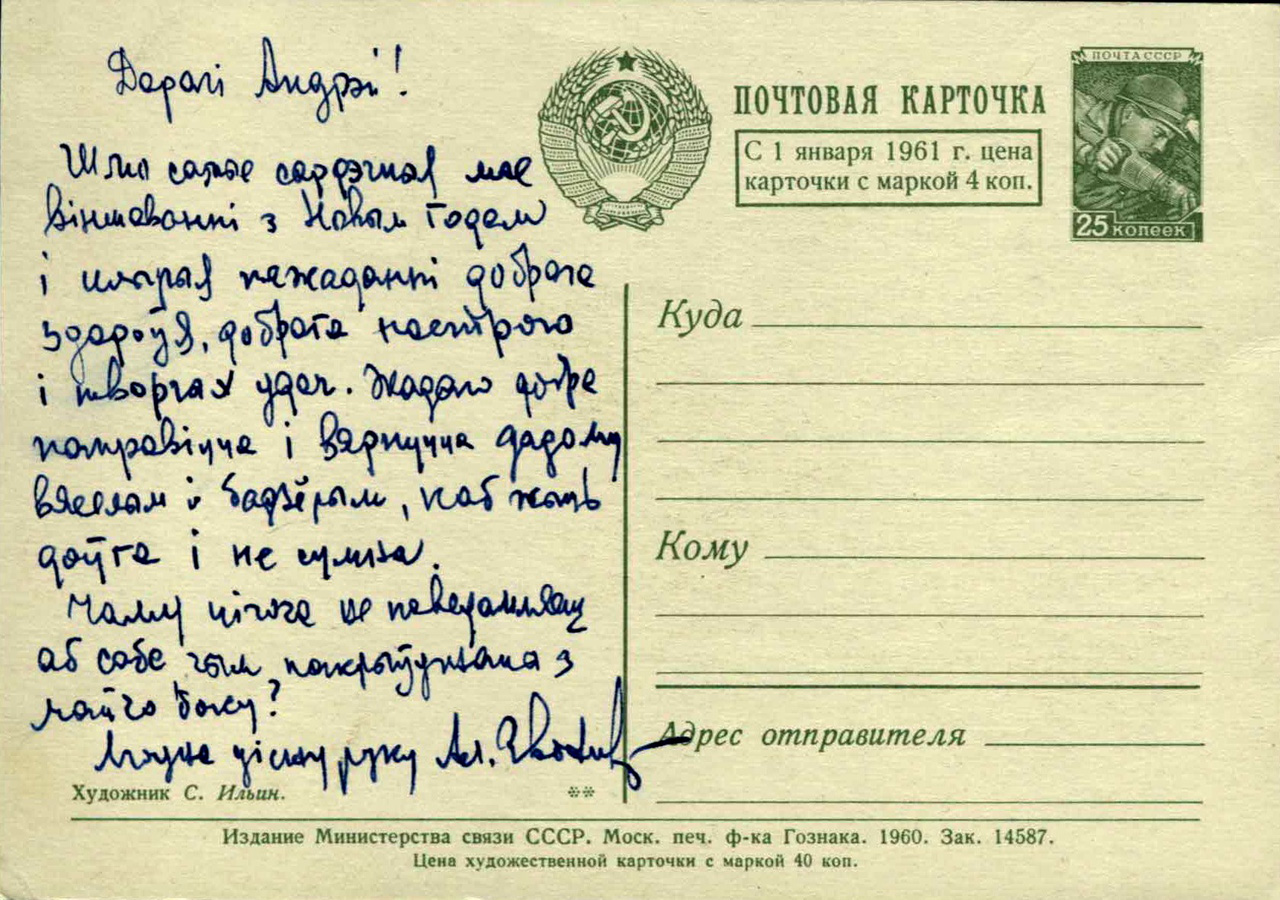 Дарагі Андрэй!
Шлю самае сардэчнае мае
віншаванні з Новым годам
і шчырыя пажаданні добрага
здароўя, добрага настрою
і творчых удач. Жадаю добра
паправіцца і вярнуцца дадому
вясёлым і бадзёрым, каб жыць
доўга і не
Чаму нічога не паведамляеш
аб сабе чым, пакрыўджана з
майго боку?
Моцна цісну руку Ал.
ПОЧТА СССР
25 КОПЕЕК
ПОЧТОВАЯ КАРТОЧКА
С 1 января 1961 г. цена
карточки с маркой 4 коп.
Куда
Кому
Адрес отправителя
Художник С. Ильин.
**
Издание Министерства связи СССР. Моск. печ. ф-ка Гознака. 1960. Зак. 14587.
Цена художественной карточки с маркой 40 коп.